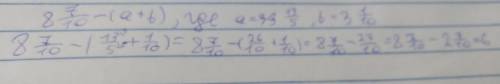 8 7/10 - (a + b), где a = 13/5, b = 3 1/10
8 7/10 - (13/5 + 1/10) = 8 7/10 - (26/10 + 1/10) = 8 7/10 - 27/10 = 8 7/10 - 2 7/10 = 6